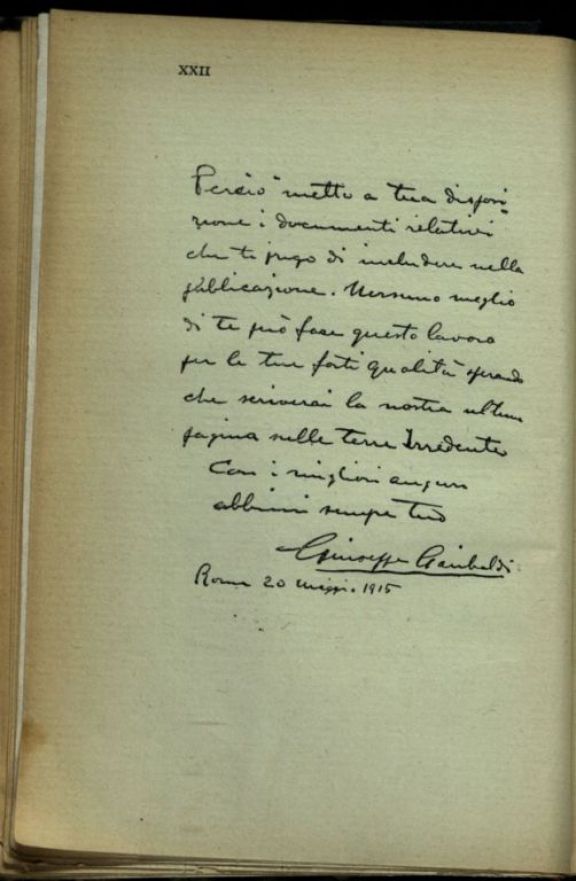 XXII
Perciò metto a tua disposi-
zione i documenti relativi
che ti prego di includere nella
pubblicazione. Nessuno meglio
di te può fare questo lavoro
per le tue forti qualità sperando
che scriverai la nostra ultima
pagina nelle terre Irredente
Con i migliori auguri
abbimi sempre tuo
Giuseppe Garibaldi
Roma 20 maggio 1915